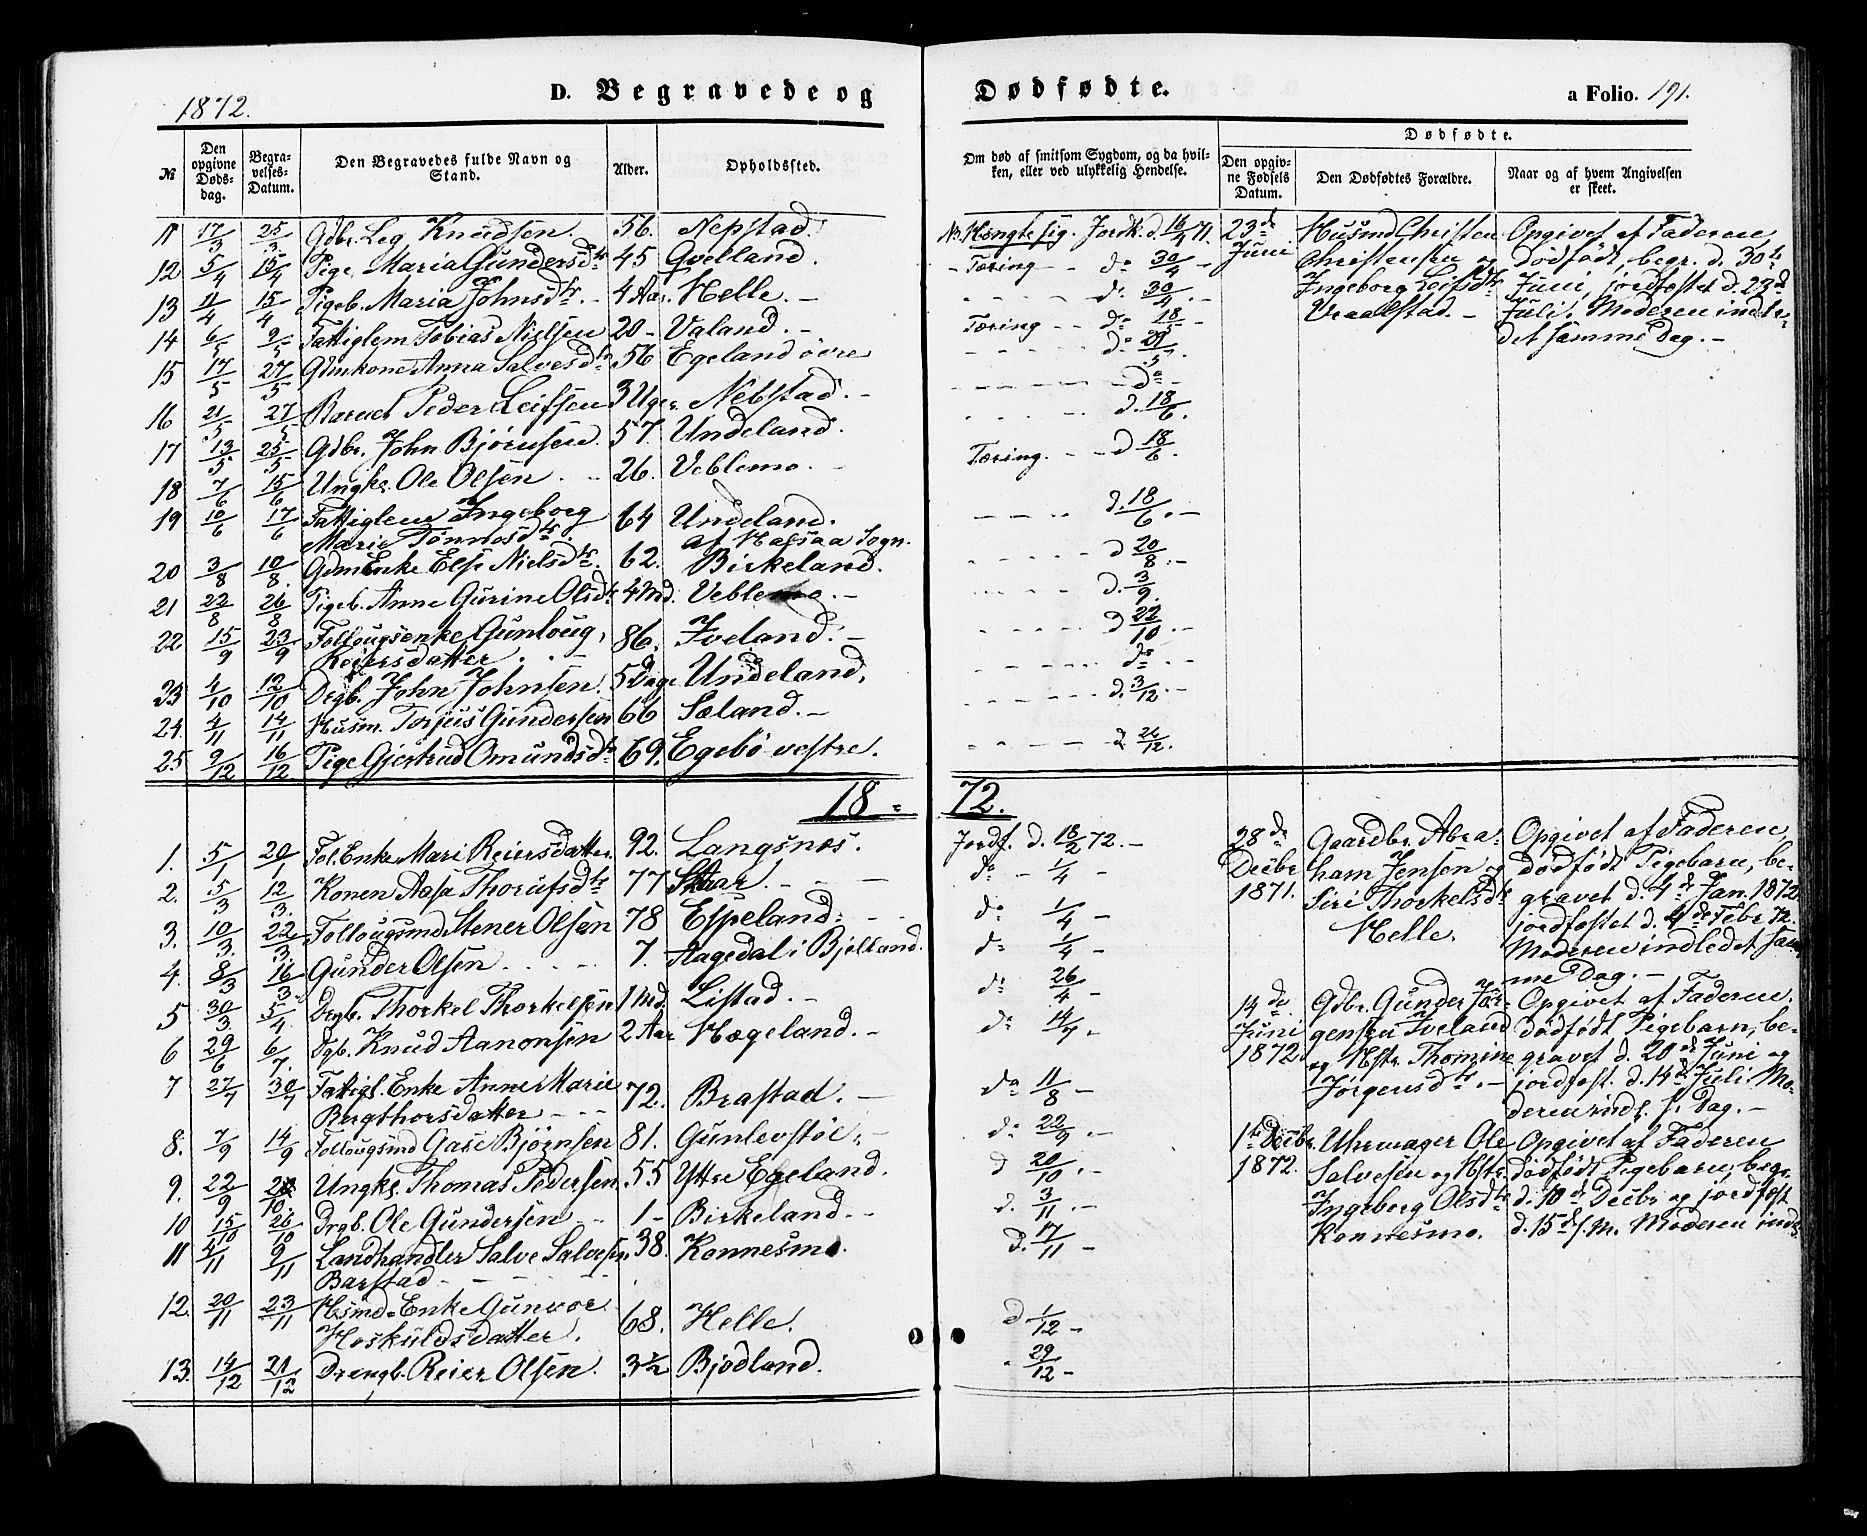 1872.
D. Begravede og
Dødfødte.
a Folio. 191.
№
Den opgivne Døds-dag.
Begra-velses-Datum.
Den Begravedes fulde Navn og Stand.
Alder.
Opholdssted.
Om død af smitsom Sygdom, og da hvil-
ken, eller ved ulykkelig Hendelse.
Den opgiv-ne Fødsels Datum.
Dødfødte.
Den Dødfødtes Forældre.
Naar og af hvem Angivelsen er skeet.
11 17/3 25/3 Gdbr. Leg Knudsen 56. Nepstad.
12 5/4 15/4 Pige Maria Gundersdtr 45 Qvelland.
13 11/4 15/4 Pigeb. Maria Johnsdtr. 4 Aar. Helle. –
14 6/5 9/5 Fattiglem Tobias Nielsen 20 – Valand. –
15 17/5 27/5 Gdmkone Anna Salvesdtr 56 Egeland övre
16 21/5 27/5 Barnet Peder Leifsen 3 Uger. Nebstad. –
17 13/5 25/5 Gdbr. John Bjørnsen. 57. Undeland.
18 7/6 15/6 Ungk. Ole Olsen 26. Veblemo. –
19 10/6 17/6 Fattiglem Ingeborg 64 Undeland.
Marie Tønnesdtr. af Halsaa Sogn.
20 3/8 10/8 Gdm Enke Else Nielsdtr. 62. Birkeland.
21 22/8 26/8 Pigeb. Anne Gurine Olsdtr 4 Md. Veblemo. –
22 15/9 23/9 Follougsenke Gunloug, 86. Iveland. –
Reiersdatter.
23 4/10 12/10 Drgb. John Johnsen. 5 Dage Undeland.
24. 4/11 14/11 Husm. Torjus Gundersen 66 Sæland. –
25 9/12 16/12 Pige Gjertrud Omundsdtr 69. Egebö vestre.
Nr. Hængte sig. Jordk. d. 16/4 71.
– Tæring – do 30/4 –
do 30/4 –
Tæring – – do 18/5 –
do
do –
d. 18/6.
Tæring. – – d 18/6.
d. 18/6. –
d 20/8. –
d. 3/9.
d 22/10. –
do. –
d. 3/12. –
d 26/12.
23de Juni
Husmd Christen
Christensen og
Ingeborg Leifsdtr
Vraalstad. –
Opgivet af Faderen,
dødfødt, begr. d. 30te
Juni, jordfæstet d. 23de
Juli. Moderen indle-
det samme Dag. –
18 = 72.
1. 5/1 20/1 Fol. Enke Mari Reiersdatter. 92. Langsnes.
2. 5/3 12/3. Konen Aasa Thorufsdtr 77
3. 10/3. 22/3. Follougsmd Stener Olsen 78 Espeland.
4. 8/3 16/3. Gunder Olsen 7. Aagedal i Bjelland.
5 30/3 5/4. Drgb. Thorkel Thorkelsen 1 Md. Listad. –
6 29/6 6/7. Dgb. Knud Aanonsen 2 Aar Hægeland. –
7 27/7 30/7 Fattigl. Enke Anne Marie 72. Brastad. –
Bergthorsdatter – – –
8. 7/9 14/9 Follougsmd Gase Bjørnsen 81. Gunlevstøl –
9. 22/9 /10 Ungk. Thomas Pedersen 55 Yttre Egeland.
10 15/10 26/10 Drgb. Ole Gundersen 1 – Birkeland. –
11 4/11 9/11 Landhandler Salve Salvesen 38. Konnesmo.
Barstad – – –
12. 20/11 23/11 Hsmd. Enke Gunvor 68. Helle.
Hoskuldsdatter.
13. 14/12 21/12 Drengb. Reier Olsen. 3 1/2 Bjodland.
Jordf. d. 18/2 72. –
do – 1/4 –
do 1/4 –
do 1/4 –
do 26/4 –
do 14/7 –
do 11/8 –
do 22/9. –
d 20/10. –
d. 3/11. –
d. 17/11 –
d 1/12 –
29/12 –
28de Decbr 1871.
Gaardbr. Abra-
ham Jensen og
Siri Thorkelsdtr
Helle.
Opgivet af Faderen,
dødfødt Pigebarn, be-
gravet d. 4de Jan. 1872
jordfæstet d. 4de Febr. 72.
Moderen indledet sam-
me Dag. –
14de Juni 1872.
Gdbr. Gunder Jør-
gensen Iveland
og Hstr. Thomine
Jörgensdtr. –
Opgivet af Faderen.
dødfødt Pigebarn, be-
gravet d. 20de Juni og
jordfæst. d. 14de Juli. Mo-
deren indl. s. Dag. –
1ste Decbr. 1872.
Uhrmager Ole
Salvesen og Hstr.
Ingeborg Olsdtr
Konnesmo.
Opgivet af Faderen
dödfödt Pigebarn, begr.
d. 10de Decbr og jordfæst
d. 15de s. M. Moderen indl.